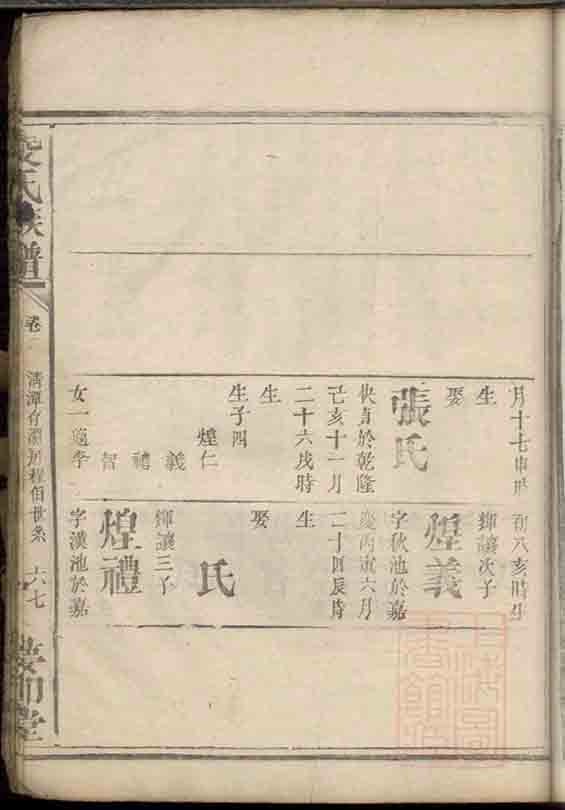 月十七申時
生
娶
張氏
快貞於乾隆
己亥十一月
二十六戌時
生
生子四
煌仁
義
禮
智
女一適李
初八亥時生
輝讓次子
煌義
字秋池於嘉
慶丙寅六月
二十四辰時
生
娶
氏
輝讓三子
煌禮
字漢池於嘉
氏族譜
卷
清潭
程伯世系
六七
堂